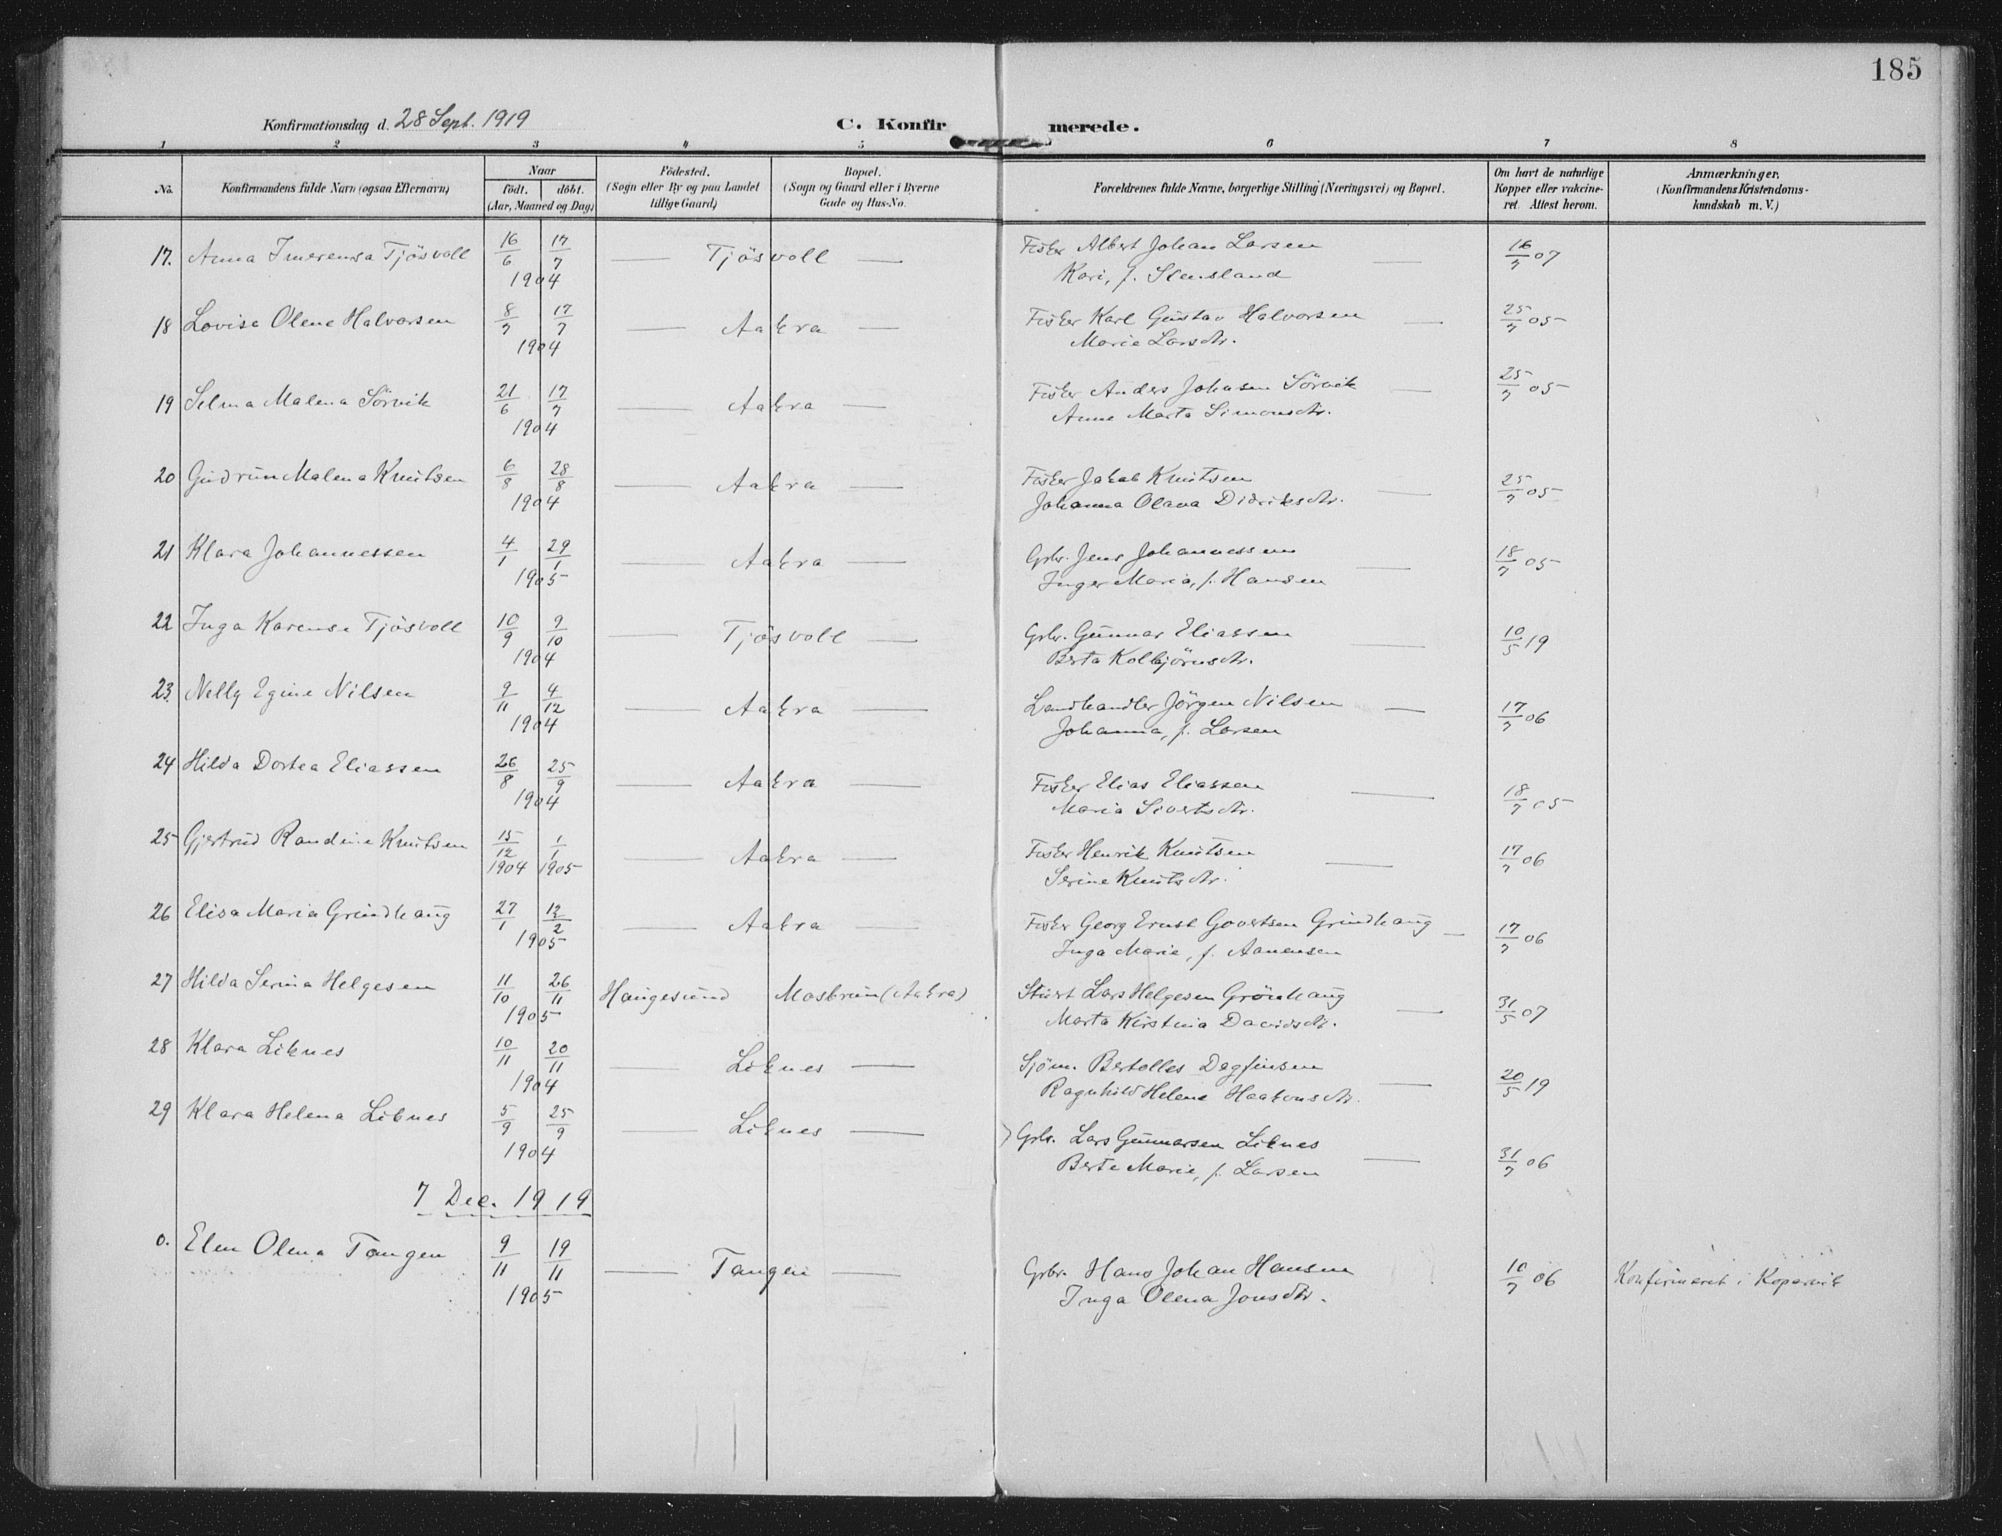 185
Konfirmationsdag d. 28 Sept. 1919
C. Konfirmerede.
1 2 3 4 5 6 7 8
No. Konfirmandens fulde Navn (ogsaa Efternavn) Naar födt. döbt. (Aar, Maaned og Dag) Födested. (Sogn eller By og paa Landet tillige Gaard) Bopæl. (Sogn og Gaard eller i Byerne Gade og Hus-No. Forældrenes fulde Navne, borgerlige Stilling (Næringsvei) og Bopæl. Om havt de naturlige Kopper eller vakcineret. Attest herom. Anmærkninger. (Konfirmandens Kristendomskundskab m. V.)
17. Anna Imerensa Tjösvoll 16/6 17/7 1904 — Tjösvoll — Fisker Albert Johan Larsen — 16/7 07
Kari, f. Stensland
18 Lovise Olene Halvorsen 8/7 17/7 1904 — Aakra — Fisker Karl Gustav Halvorsen — 25/7 05
Marie Larsdtr.
19 Selma Malena Sörvik 21/6 17/7 1904 — Aakra — Fisker Anders Johnsen Sörvik — 25/7 05
Anne Marta Simonsdtr.
20 Gudrun Malena Knutsen 6/8 28/8 1904 — Aakra — Fisker Jakob Knutsen — 25/7 05
Johanna Olava Didriksdtr.
21 Klara Johannessen 4/1 29/1 1905 — Aakra — Grbr. Jens Johannessen — 18/7 05
Inger Maria, f. Hansen
22 Inga Karense Tjösvoll 10/9 9/10 1904 — Tjösvoll — Grbr. Gunnar Eliassen — 10/5 19
Berta Kolbjörnsdtr.
23. Nelly Egine Nilsen 9/11 4/12 1904 — Aakra — Landhandler Jörgen Nilsen — 17/7 06
Johanna, f. Larsen
24 Hilda Dortea Eliassen 26/8 25/9 1904 — Aakra — Fisker Elias Eliassen — 18/7 05
Maria Sivertsdtr.
25 Gjertrud Randine Knutsen 15/12 1904 1/1 1905 — Aakra — Fisker Henrik Knutsen — 17/7 06
Serine Knutsdtr.
26 Elisa Maria Grindhaug 27/1 12/2 1905 — Aakra — Fisker Georg Ernst Govertsen Grindhaug — 17/7 06
Inga Marie, f. Aanensen
27 Hilda Serina Helgesen 11/10 26/11 1905 Haugesund Mosbrun (Aakra) Stuert Lars Helgesen Grönhaug — 31/5 07
Marta Kirstina Davidsdtr.
28 Klara Liknes 10/11 20/11 1904 — Liknes — Sjöm. Bertolles Dagfinsen — 20/5 19
Ragnhild Helene Haakonsdtr.
29 Klara Helena Liknes 5/9 25/9 1904 — Liknes — Grbr. Lars Gunnarsen Liknes — 31/7 06
Berte Marie, f. Larsen
7 Dec. 1919
0. Elen Olena Tangen 9/11 19/11 1905 — Tangen — Grbr. Hans Johan Hansen 10/7 06 Konfirmeret i Kopervik
Inga Olena Jonsdtr.